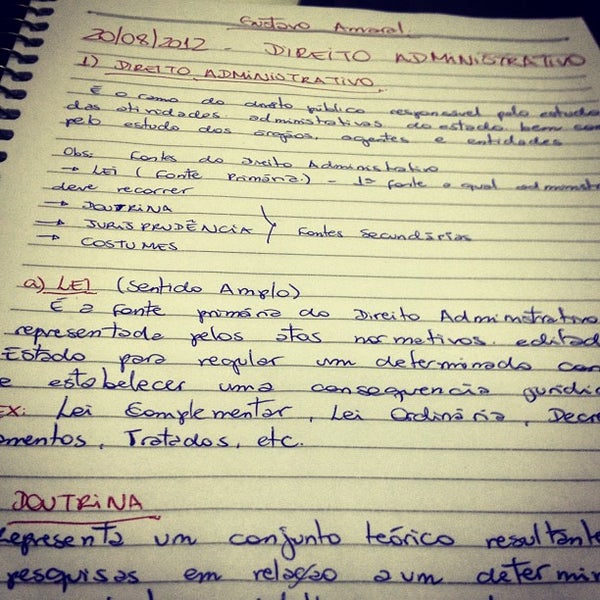 Gustavo Amaral
20/08/2012 - DIREITO ADMINISTRATIVO
1) DIREITO ADMINISTRATIVO
É o ramo do direito público responsável pelo estudo
das atividades administrativas do estado bem com
pelo estudo dos órgãos, agentes e entidades
Obs: Fontes do Direito Administrativo
→ LEI (Fonte Primária) - 1ª fonte a qual administr
deve recorrer
→ DOUTRINA
→ JURISPRUDÊNCIA } Fontes Secundárias
→ COSTUMES
a) LEI (Sentido Amplo)
É a fonte primária do Direito Administrativo
representada pelos atos normativos editad
Estado para regular um determinado cas
e estabelecer uma consequencia juridic
EX: Lei Complementar, Lei Ordinária, Decre
amentos, Tratados, etc.
DOUTRINA
Representa um conjunto teórico resultante
pesquisas em relação a um determin